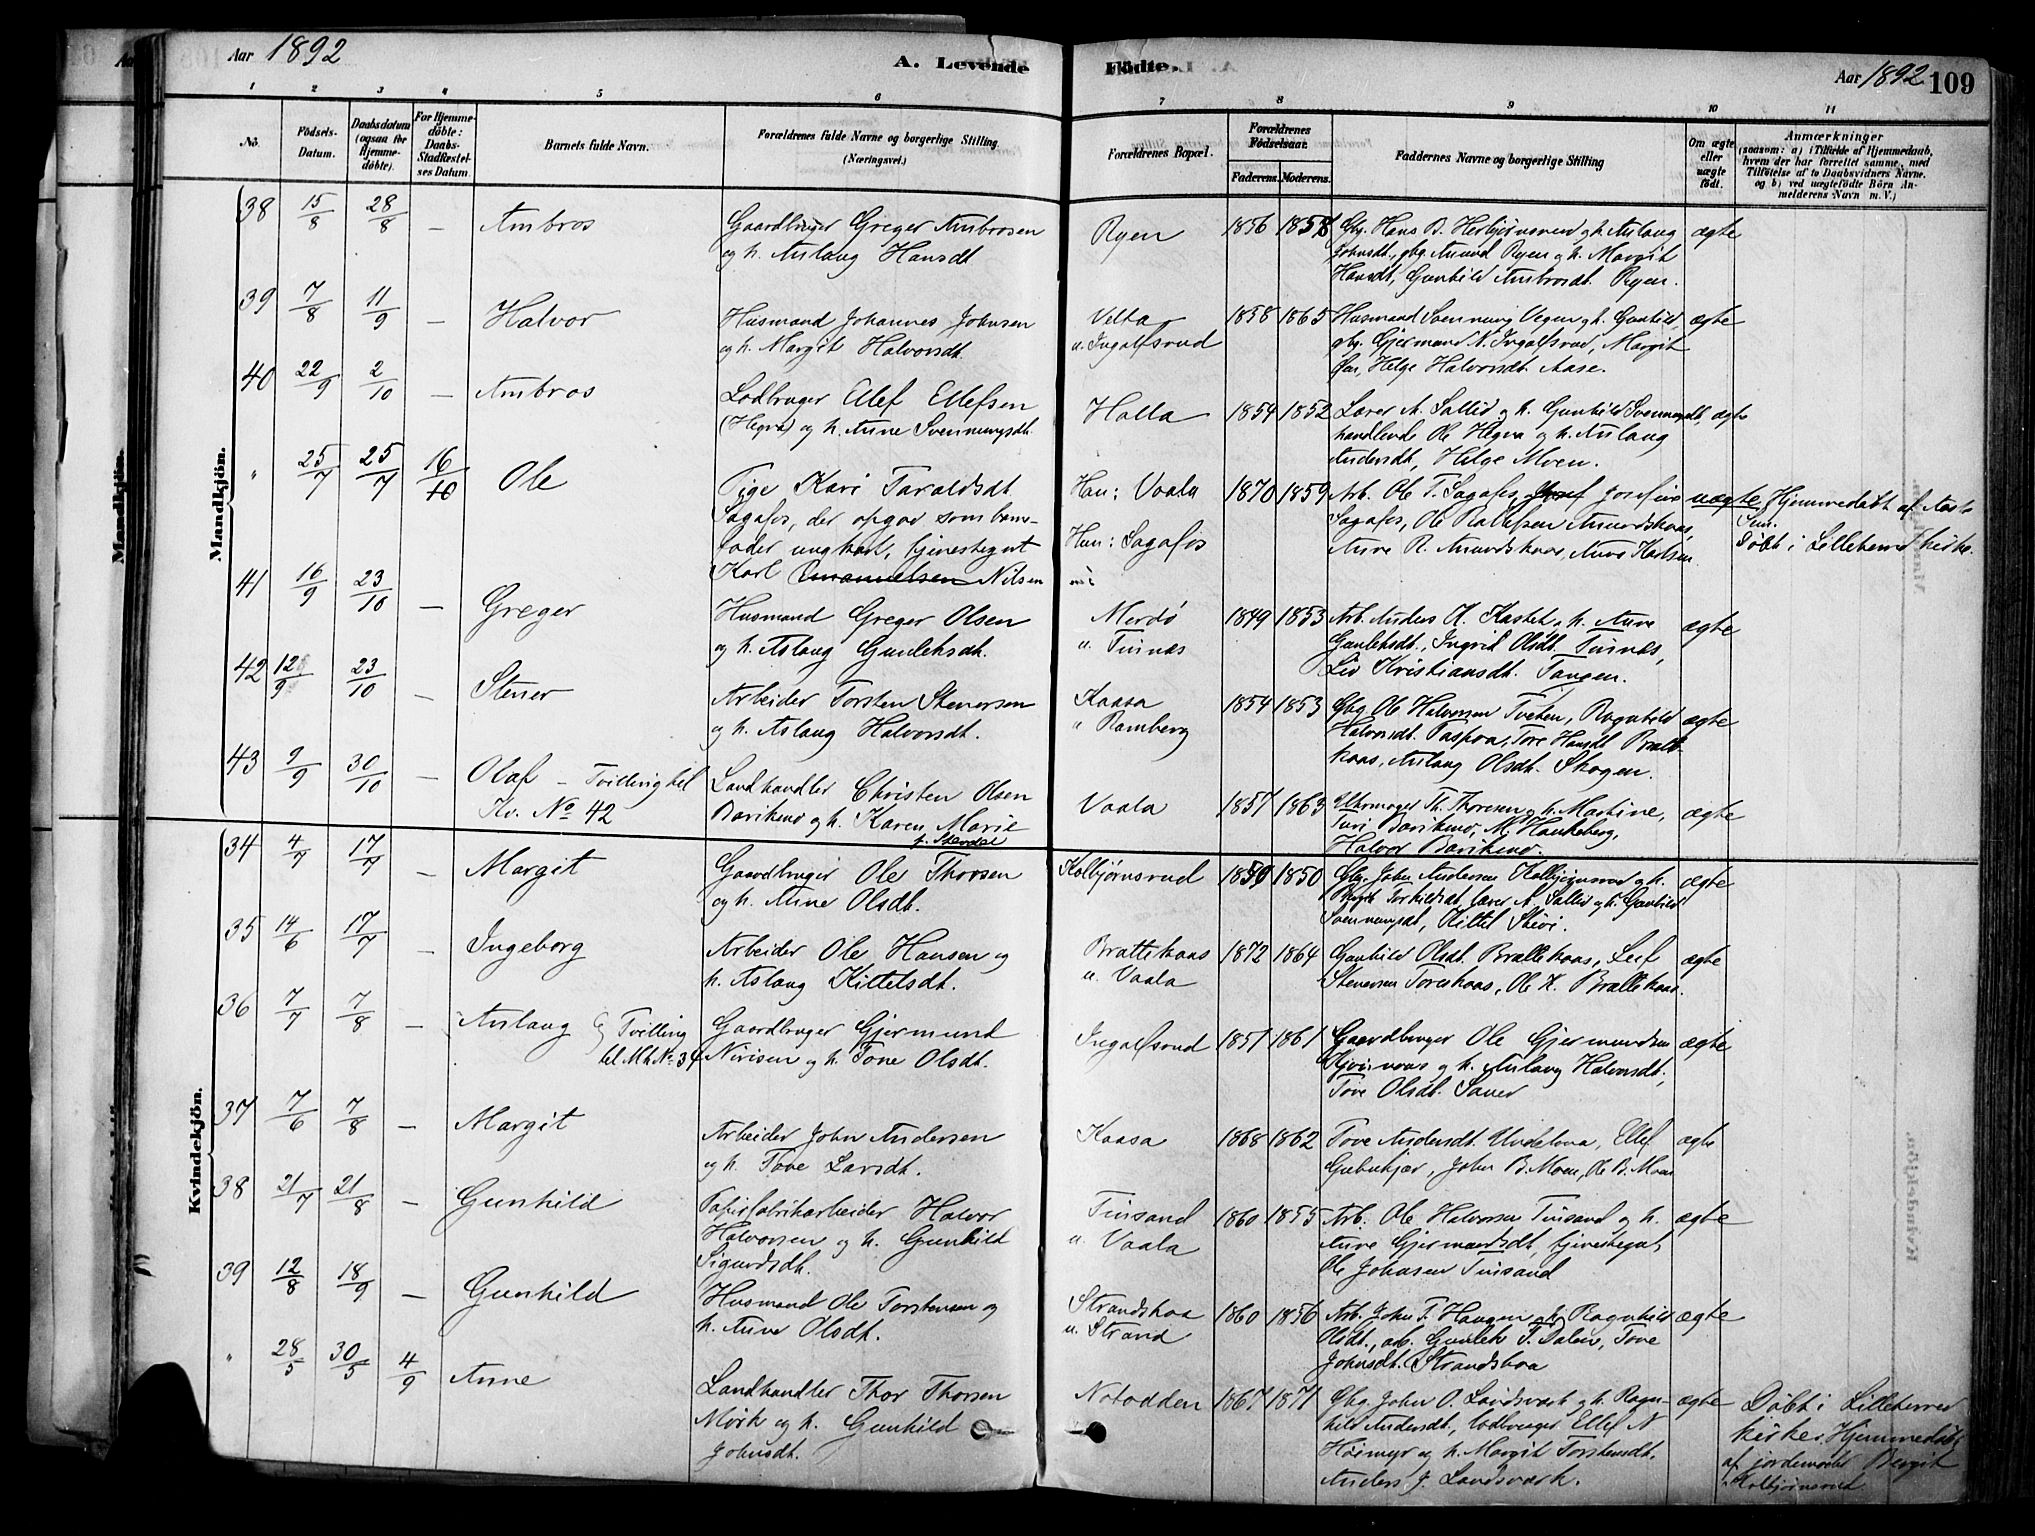 Aar 1892
A. Levende
Födte.
Aar 1892 109
1 2 3 4 5 6 7 8 9 10 11
No.
Födsels-Datum.
Daabsdatum (ogsaa for Hjemmedöbte).
For Hjemmedöbte: Daabs-Stadfæstelses Datum.
Barnets fulde Navn.
Forældrenes fulde Navne og borgerlige Stilling (Næringsvei.)
Forældrenes Bopæl.
Forældrenes Födselsaar.
Faderens. Moderens.
Faddernes Navne og borgerlige Stilling
Om ægte eller uægte födt.
Anmærkninger
(saasom: a) i Tilfælde af Hjemmedaab,
hvem der har forrettet samme, med
Tilföielse af to Daabsvidners Navne.
og b) ved uægtefödte Börn Anmelderens Navn m. V.)
Mandkjön.
38 15/8 28/8 — Ambros
Gaardbruger Greger Ambrosen
og h. Aslaug Hansdt.
Ryen
1856 1857
Gbg. Hans B. Herbjørnsrud og h. Aslaug
Johnsdt., gbg. Amund Ryen og h. Margit
Hansdt, Gunhild Ambrosdt. Ryen.
ægte
39 7/8 11/9 — Halvor
Husmand Johannes Johnsen
og h. Margit Halvorsdt.
Vilta
u. Ingolfsrud
1858 1865
Husmand Svennung Vegen og h. Gunhild,
gbg. Gjermund N. Ingolfsrud, Margit
Helge Halvorsdt. Aase.
ægte
40 22/9 2/10 — Ambros
Lodbruger Ellef Ellefsen
(Hegna) og h. Anne Svennungsdt.
Holla
1854 1852
Lærer A. Sallid og h. Gunhild Svennungsdt,
handlende Ole Hegna og h. Aslaug
Andersdt, Helge Moen.
ægte
" 25/7 25/7 16/10 Ole
Pige Kari Taraldsdt.
Sagafos, der opgav som barne-
fader ungkarl, tjenestegut
Karl Emanuelsen Nilsen
Han: Vaala
Hun: Sagafos
1870 1859
Arb. Ole T. Sagafos, Josef Josefine
Sagafos, Ole Rollefsen Amundskaas,
Anne R. Amundskaas, Anne Karlsen
uægte
Hjemmedøbt af
Døbt i Lilleherred kirke.
41 16/9 23/10 — Greger
Husmand Greger Olsen
og h. Aslaug Gunleksdt.
Merdø
u. Tinnæs
1849 1853
Arb. Anders K. Kastet og h. Anne
Gunleksdt., Ingrid Olsdt. Tinnæs,
Liv Kristiansdt. Tangen.
ægte
42 12/9 23/10 — Stener
Arbeider Torsten Stenersen
og h. Aslaug Halvorsdt.
Kaasa
u Ramberg
1854 1853
Gbg Ole Halvorsen Tveten, Ragnhild
Halvorsdt. Paspoa, Tore Hansdt Bratt-
kaas, Aslaug Olsdt. Skogen.
ægte
43 9/9 30/10 — Olaf – Tvilling til
Kv. No 42
Landhandler Christen Olsen
Barikmo og h. Karen Marie
f. Stendal
Vaala
1857 1863
Uhrmager Th. Thoresen og h. Martine,
Turi Barikmo, M. Haukeberg,
Halvor Barikmo.
ægte
Kvindekjön.
34 4/7 17/7 — Margit
Gaardbruger Ole Thorsen
og h. Anne Olsdt.
Kolbjørnsrud
1850 1850
Gbg. John Andersen Kolbjørnsrud og h.
Birgit Torkildsdt, lærer A. Sallid og h. Gunhild
Svennungsdt, Kittel Støvi.
ægte
35 14/6 17/7 — Ingeborg
Arbeider Ole Hansen og
h. Aslaug Kittelsdt.
Brattekaas
u. Vaala
1872 1864
Gunhild Olsdt. Brattekaas, Leif
Stenersen Toreskaas, Ole K. Brattekaas.
ægte
36 7/7 7/8 — Aslaug
Tvilling
til Mk. No. 34
Gaardbruger Gjermund
Nirisen og h. Tone Olsdt.
Ingolfsrud
1851 1861
Gaardbruger Ole Gjermundsen
og h. Aslaug Halvorsdt.,
Tove Olsdt. Sauer
ægte
37 7/6 7/8 — Margit
Arbeider John Andersen
og h. Tove Larsdt.
Kaasa
1868 1862
Tove Andersdt. Undelova, Ellef
Grebukjær, John B. Moen, Ole B. Moen
ægte
38 21/7 21/8 — Gunhild
Papirfabrikarbeider Halvor
Halvorsen og h. Gunhild
Sigurdsdt.
Tinsand
u. Vaala
1860 1855
Arb. Ole Halvorsen Tinsand og h.
Anne Gjermundsdt, tjenestegut,
Ole Johnsen Tinsand
ægte
39 12/8 18/9 — Gunhild
Husmand Ole Torstensen og
h. Anne Olsdt.
Strandskoa
u. Strand
1860 1856
Arb. John T. Haugen og h. Ragnhild
Olsdt., arb. Gunlek T. Dalen, Tove
Johnsdt. Strandskoa
ægte
" 28/5 30/5 4/9 Anne
Landhandler Thor Thorsen
Mørk og h. Gunhild
Johnsdt.
Notodden
1867 1871
Gbg. John O. Landsverk og h. Ragn-
hild Andersdt, lodbruger Ellef N
Høimyr og h. Margit Torstensdt.
Anders J. Landsverk.
ægte
Døbt i Lilleherred
kirke. Hjemmedøbt
af jordemoder Bergit
Kolbjørnsrud